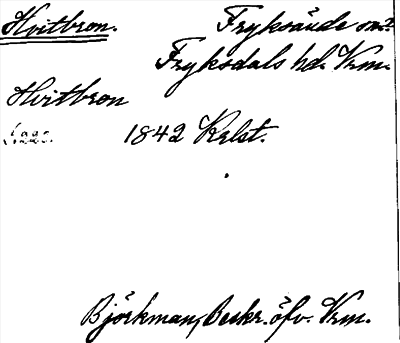 Hvitbron. Fryksände sn?
Fryksdals hd. Vrm.
Hvitbron
1842 Krlst.
Björkman, Beskr. öfv. Vrm.